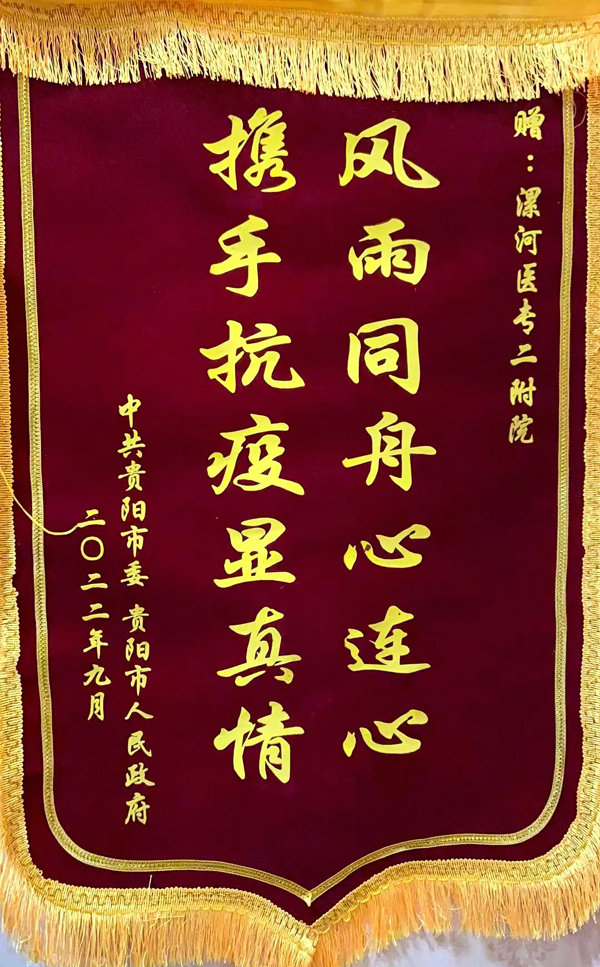 赠：漯河医专二附院
风雨同舟心连心
携手抗疫显真情
中共贵阳市委 贵阳市人民政府
二〇二二年九月